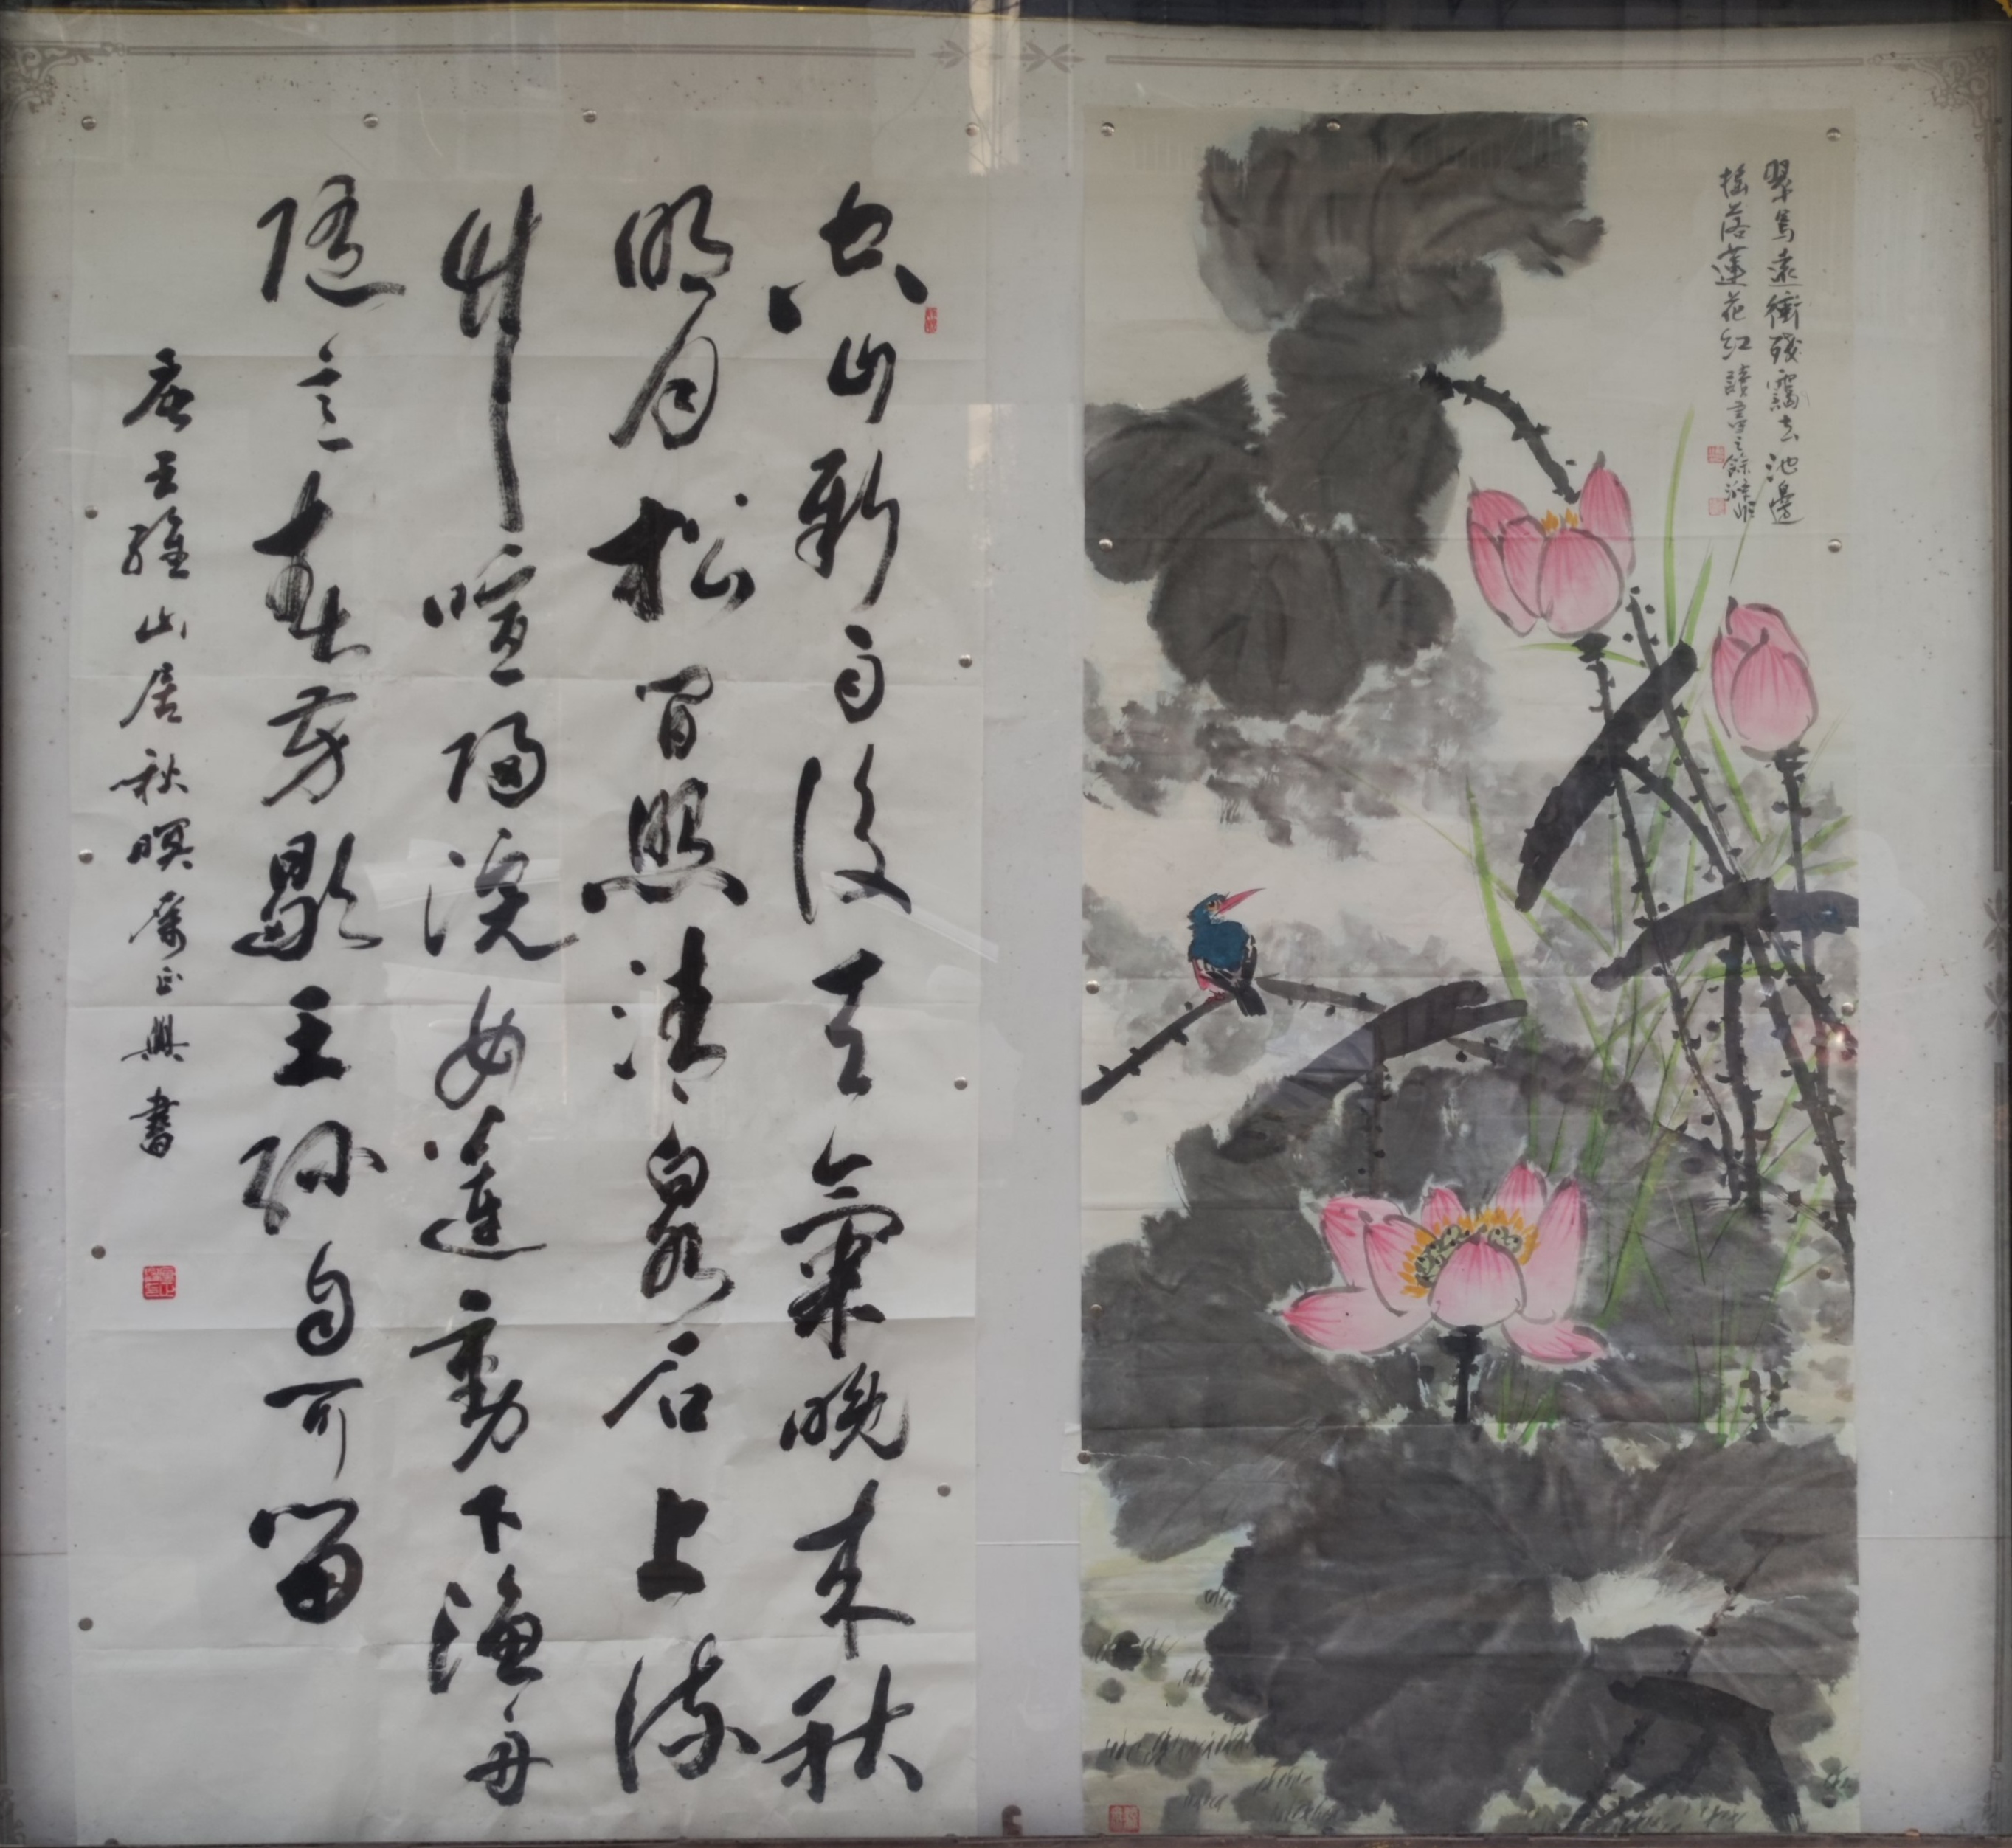 翠鳥遠殘去池邊
搖落蓮花紅讀書之餘
空山新雨後天氣晚来秋
明月松間照清泉石上流
竹喧歸浣女蓮動下漁舟
隨意春芳歇王孫自可留
唐王維山居秋暝正興書